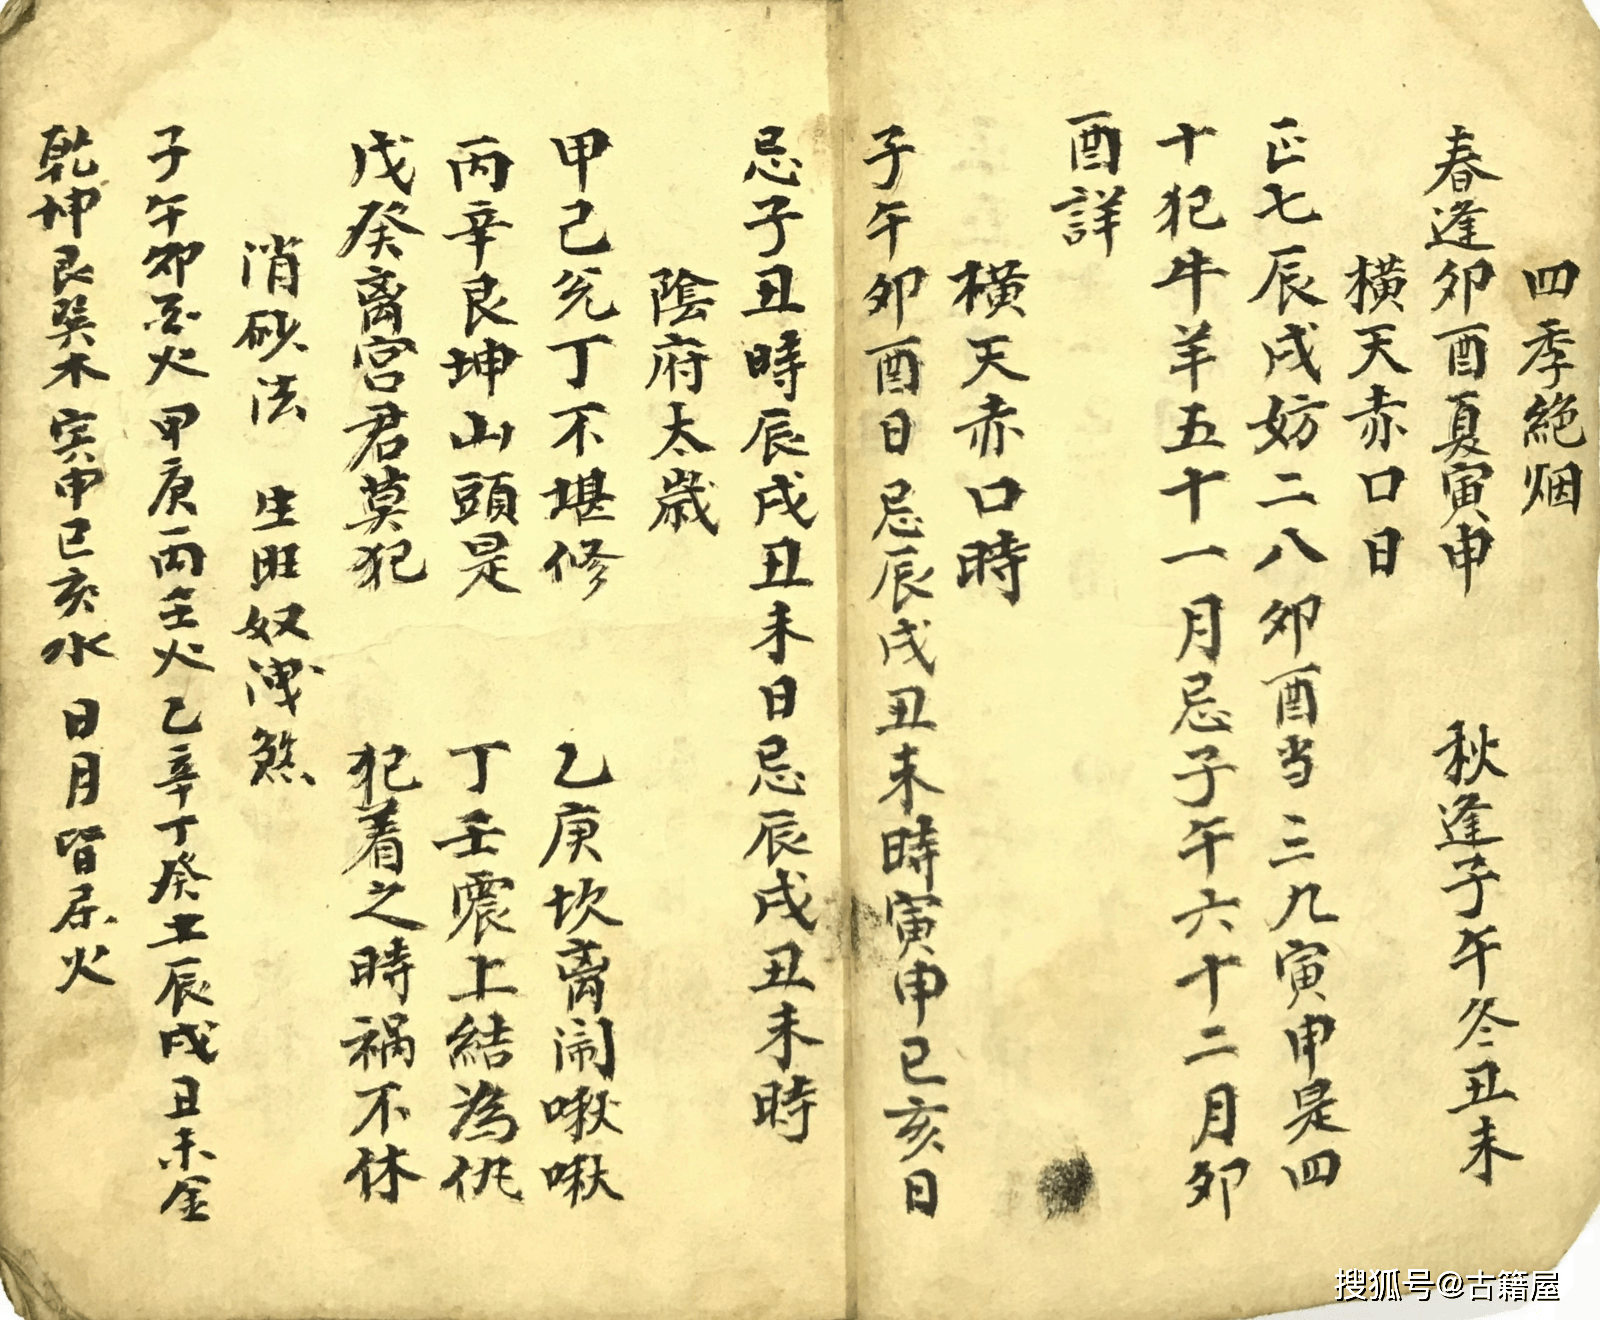 四季絶烟
春逢卯酉夏寅申 秋逢子午冬丑未
橫天赤口日
正七辰戌妨二八卯酉当三九寅申是四
十犯牛羊五十一月忌子午六十二月卯
酉詳
橫天赤口時
子午卯酉日忌辰戌丑未時寅申巳亥日
忌子丑時辰戌丑未日忌辰戌丑未時
陰府太歲
甲己兊丁不堪修 乙庚坎离闹啾啾
丙辛艮坤山頭是 丁壬震上結為仇
戊癸离宫君莫犯 犯着之時禍不休
消砂法 生旺奴洩煞
子午卯酉火甲庚丙壬火乙辛丁癸土辰戌丑未金
乾坤艮巽木寅申巳亥水日月皆屬火
搜狐号@古籍屋